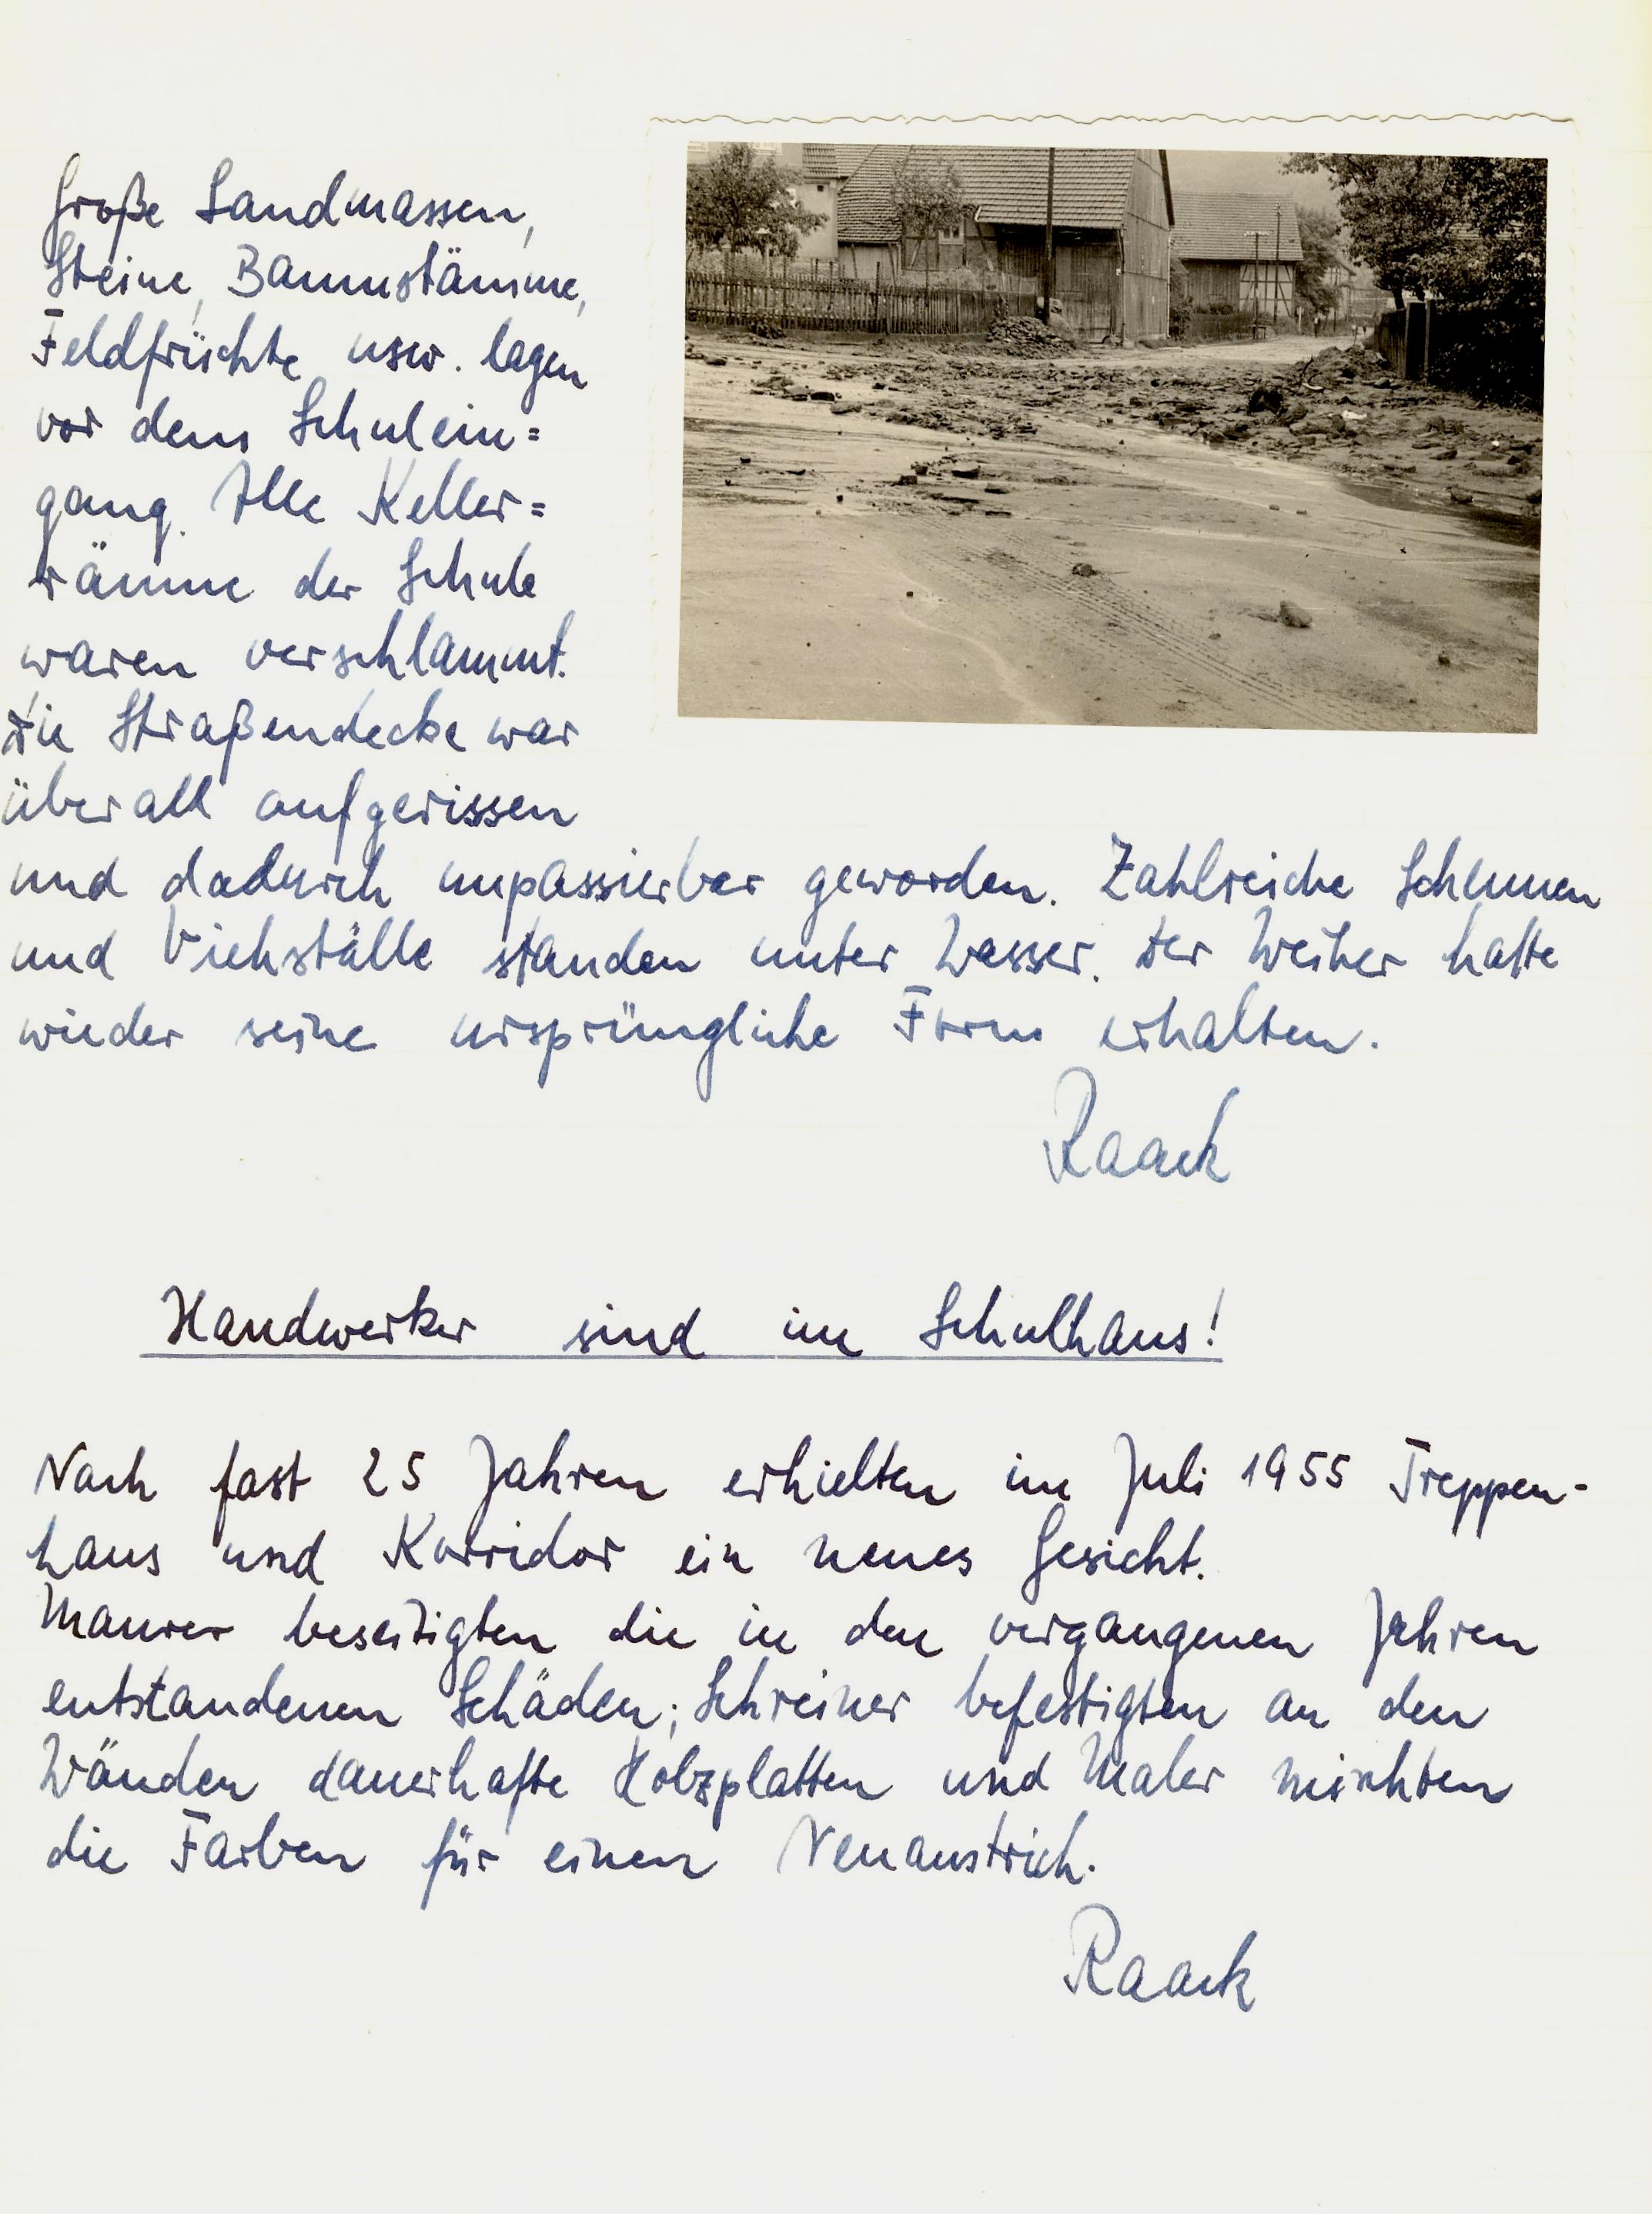 Große Sandmassen,
Steine, Baumstämme,
Feldfrüchte usw. lagen
vor dem Schulein=
gang. Alle Keller=
räume der Schule
waren verschlammt.
Die Straßendecke war
überall aufgerissen
und dadurch unpassierbar geworden. Zahlreiche Scheunen
und Viehställe standen unter Wasser. Der Weiher hatte
wieder seine ursprüngliche Form erhalten.
Raack
Handwerker sind im Schulhaus!
Nach fast 25 Jahren erhielten im Juli 1955 Treppen-
haus und Korridor ein neues Gesicht.
Maurer beseitigten die in den vergangenen Jahren
entstandenen Schäden; Schreiner befestigten an den
Wänden dauerhafte Holzplatten und Maler mischten
die Farben für einen Neuanstrich.
Raack